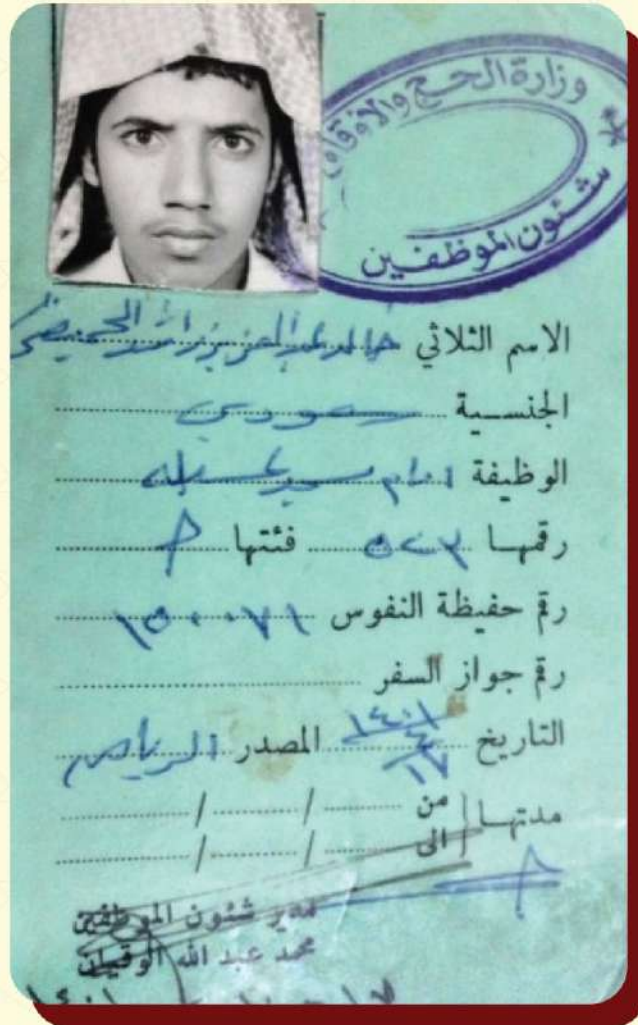 وزارة الحج والاوقاف
شئون الموظفين
الاسم الثلاثي خالد عبدالعزيز راشد
الجنسية سعودي
الوظيفة امام مسجد
رقمها ٥٢٣ فئتها م
رقم حفيظة النفوس ١٥٠٠٧١
رقم جواز السفر
التاريخ ١٤٠١/٤/١٧ المصدر الرياض
مدتها من / /
الى / /
مدير شئون الموظفين
محمد عبد الله الوقيان